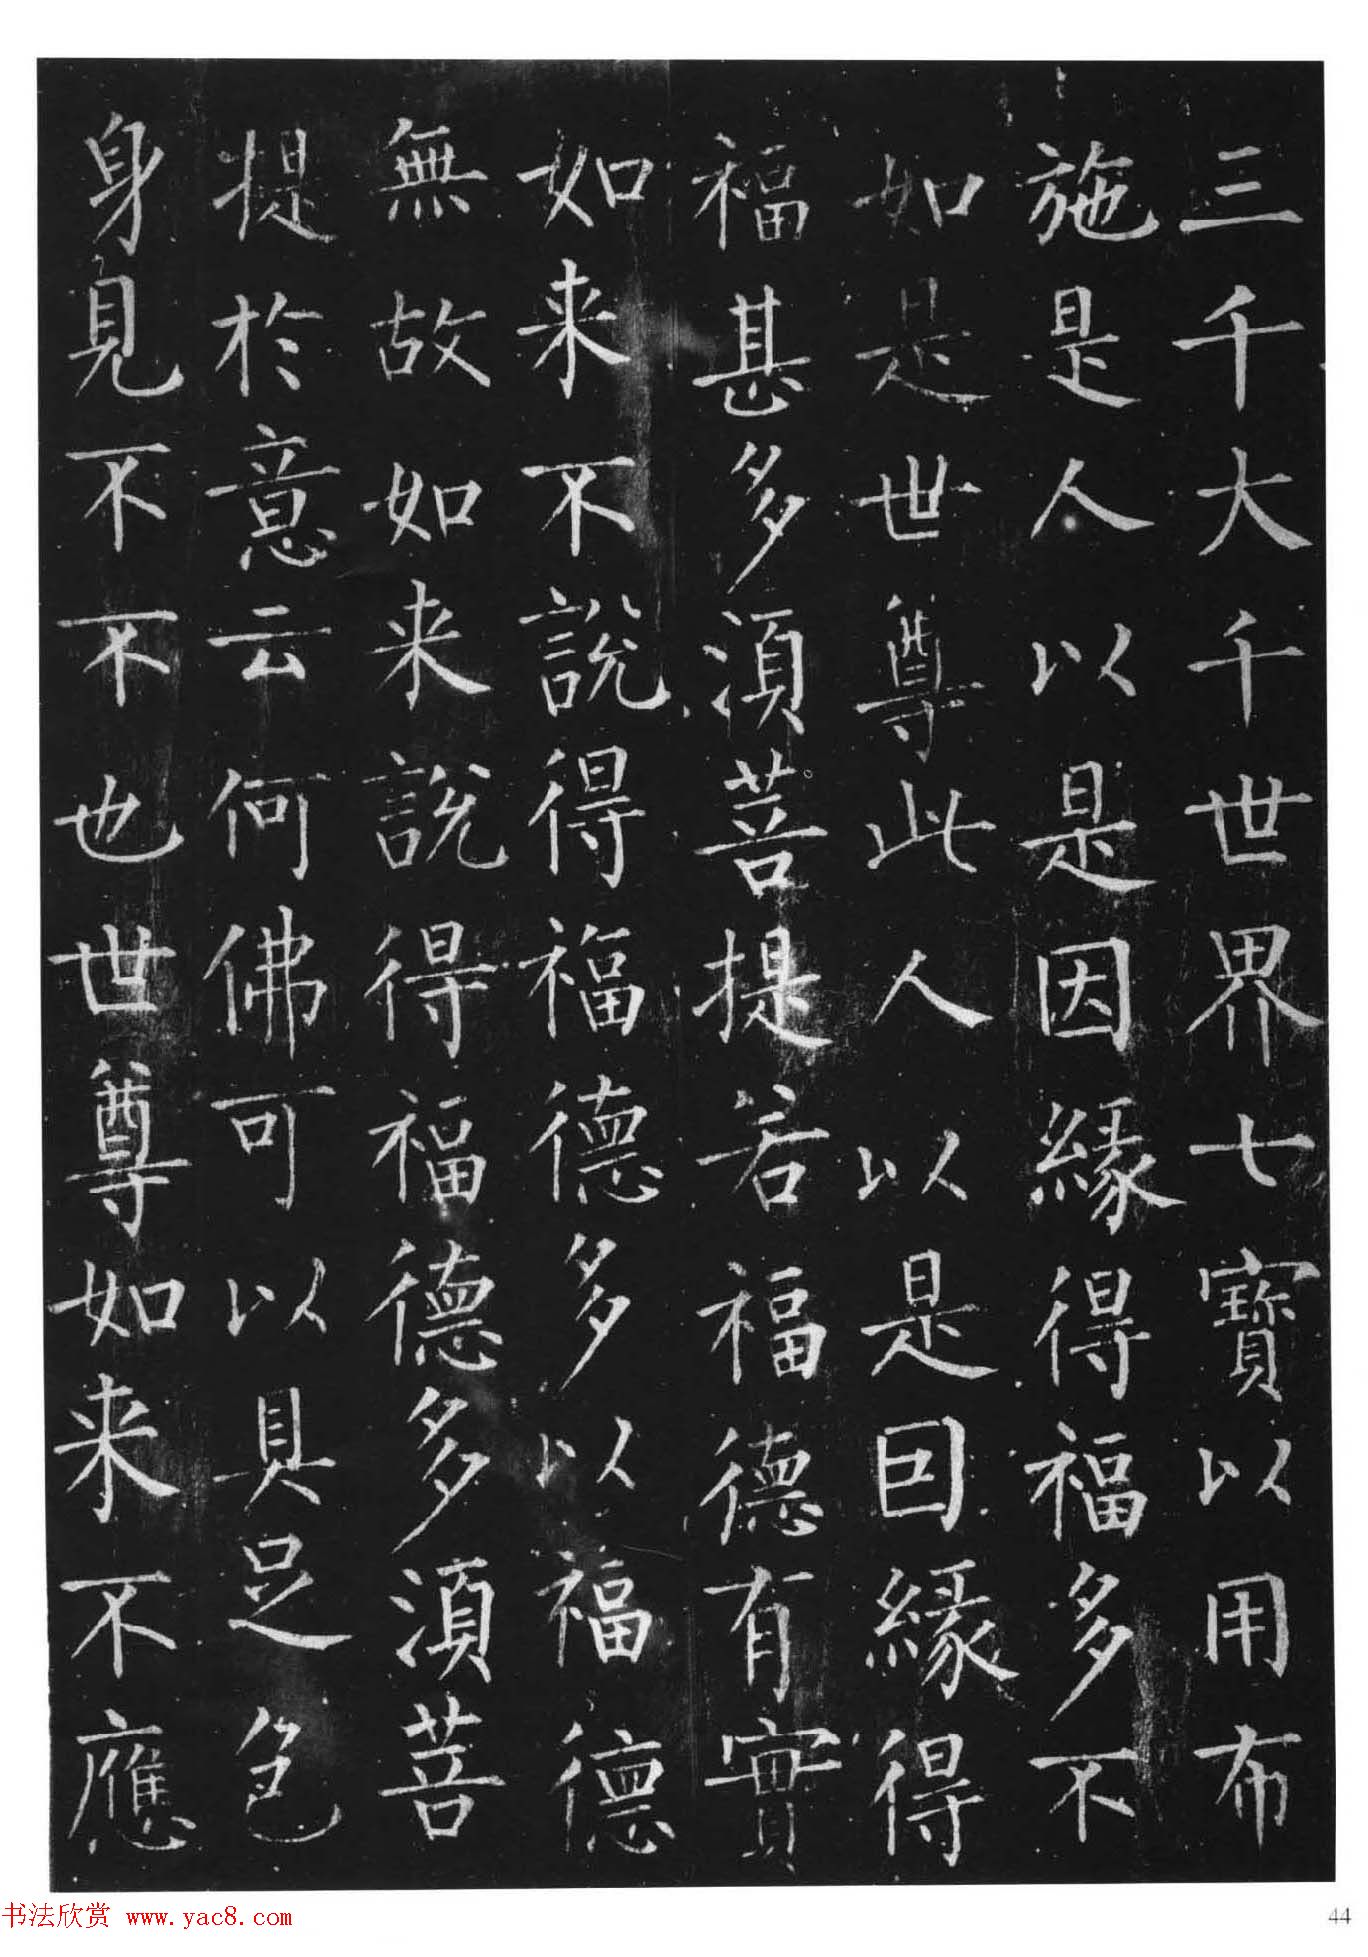 三千大千世界七寶以用布
施是人以是因緣得福多不
如是世尊此人以是因緣得
福甚多須菩提若福德有實
如来不說得福德多以福德
無故如来說得福德多須菩
提於意云何佛可以具足色
身見不不也世尊如来不應
书法欣赏 www.yac8.com
44